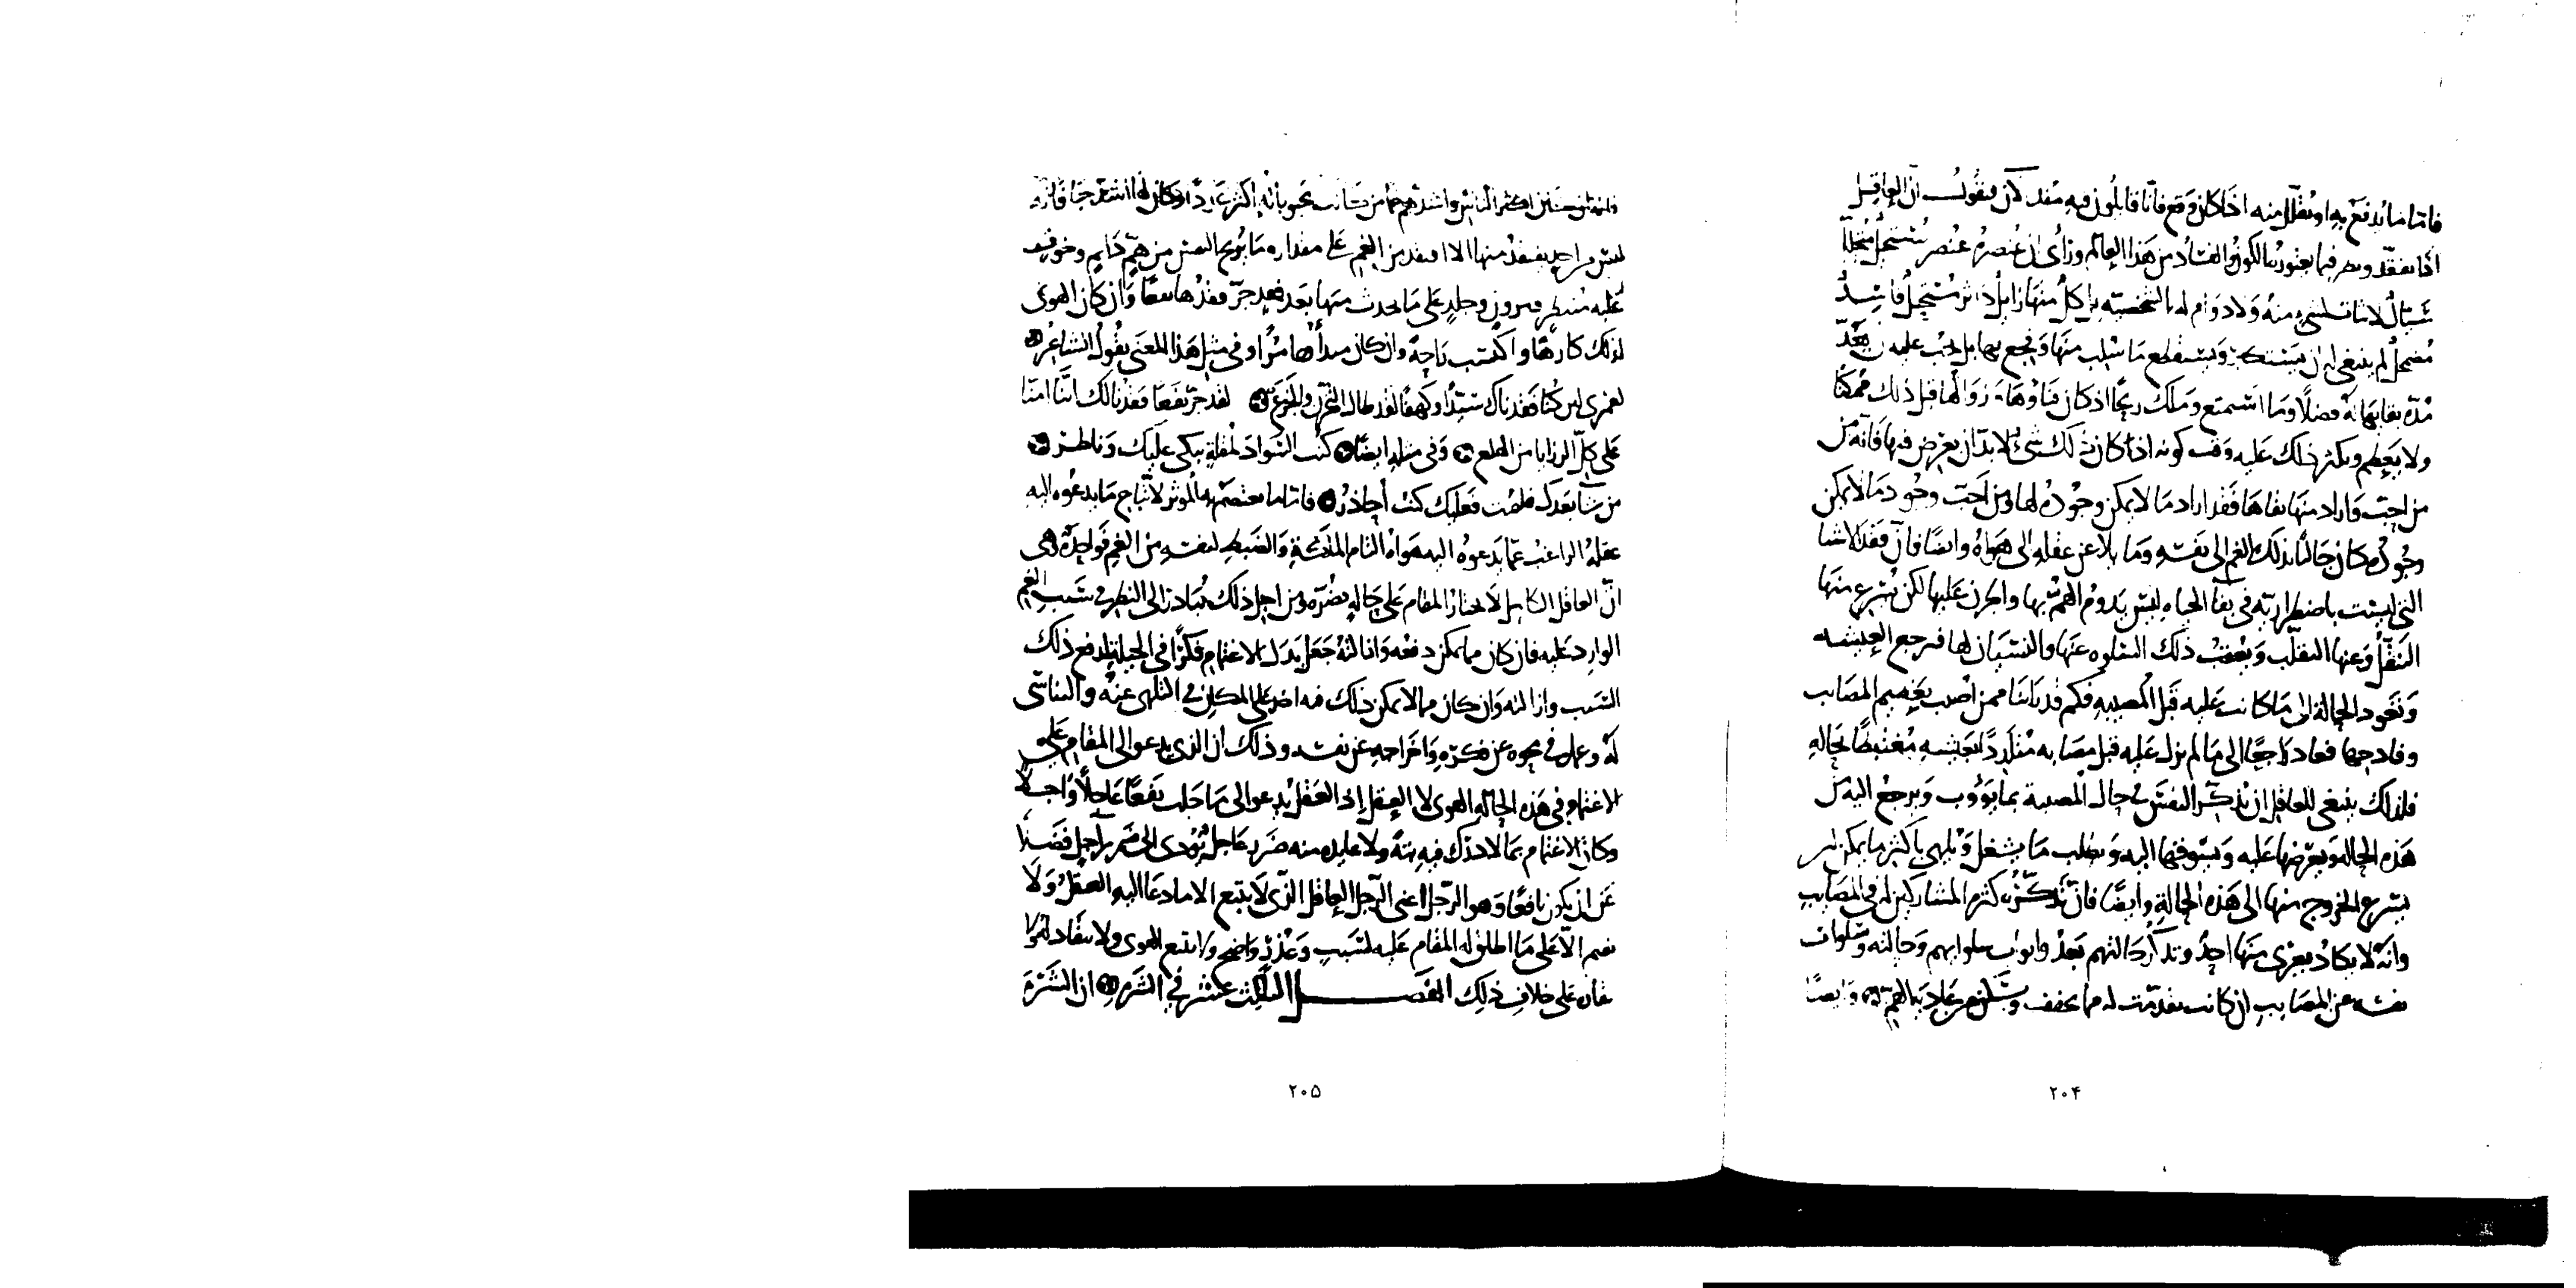 فاما ما يدفع به او يقلل منه اذا كان وقع فانا قايلون فيه منذ الآن فنقول ان العاقل
اذا تفقد ونظر فيما يعتوره الكون والفساد من هذا العالم ورأى ان عنصره عنصر مستحيل منحل
سيال لا ثبات لشيء منه ولا دوام له بالشخصية بل كل منها زايل داثر مستحيل فاسد
مضمحل لم ينبغ له ان يستكثر ويستفظع ما سلب منها وفجع بها بل يجب عليه ان يعد
مدة بقايها له فضلا وما استمتع وملك ربحا اذ كان فناؤها وزوالها قبل ذلك ممكنا
ولا يعظم ويكثر ذلك عليه وقت كونه اذ كان ذلك شئ لابد ان يعرض فيها فانه
من احب واراد منها بقاها فقد اراد ما لا يمكن وجوده لها ومن احب وجود ما لا يمكن
وجوده كان جالبا بذلك الغم الى نفسه ومايلا عن عقله الى هواه وايضا فان فقد الاشيا
التي ليست باضطرارية في بقا الحياه ليس يدوم الهم بها والحزن عليها لكن يسرع منها
التنقل وعنها التقلب ويعقب ذلك السلوه عنها والنسيان لها فيرجع العيشه
وتعود الحالة الى ما كانت عليه قبل المصيبه فكم قد راينا ممن اصيب بعظيم المصايب
وفادحها فعاد راجعا الى ما لم يزل عليه قبل مصابه متلذذا بعيشه مغتبطا بحاله
فلذلك ينبغي للعاقل ان يذكر النفس في حال المصيبة بما تؤوب وترجع اليه من
هذه الحاله ويعرضها عليه ويشوقها اليه ويطلب ما يشغل ويلهي باكثر ما يمكن
ليسرع الخروج منها الى هذه الحالة وايضا فان تذكره كثرة المشاركين له في المصايب
وانه لا يكاد يعرى منها احد وتذكر حالتهم بعد وابواب سلواتهم وحالته وسلوات
نفسه عن المصايب ان كانت تقدمت له مما يخفف ويسكن من عادية الهم وايضا
فانه ان كان اكثر الناس واشدهم غما من كانت محبوباته اكثر عددا وكان لها اشد حبا فانه
ليس من احد يفقد منها الا افتقد من الغم على مقداره ما يريح النفس من هم دايم وخوف
عليه منتظر وجلد على ما يحدث منها بعد فقد جر فقدها نفعا وان كان الهوى
لذلك كارها واكسب راحة وان كان مبدأها مرا وفي مثل هذا المعنى يقول الشاعر
لعمري لين كنا فقدناك سيدا وكهفا لقد طال التحزن والجزع لقد جر نفعا فقدنا لك اننا امنا
على كل الرزايا من الهلع وفي مثله ايضا كنت السواد لمقلة يبكي عليك وناظر
من شا بعدك فليمت فعليك كنت أحاذر فاما ما يعتصم به الموثر لاتباع ما يدعوه اليه
عقله الراغب عما يدعوه اليه هواه التام الملكة والضبط لنفسه من الغم فواحدة وهي
ان العاقل الكامل لا يختار المقام على حالة تضره ومن اجل ذلك يبادر الى النظر في سبب الغم
الوارد عليه فان كان مما يمكن دفعه وازالته جعل بدل الاغتمام فكرا في الحيلة لدفع ذلك
السبب وازالته وان كان مما لا يمكن ذلك فيه اخذ على المكان في التلهي عنه والتناسي
له وعمل في محوه عن فكره واخراجه عن نفسه وذلك ان الذي يدعو الى المقام على
الاغتمام في هذه الحالة الهوى لا العقل اذ العقل يدعو الى ما جلب نفعا عاجلا وآجلا
وكان الاغتمام بما لا درك فيه بتة ولا عايده منه ضرر عاجل يؤدى الى ضرر آجل فضلا
عن ان يكون نافعا وهو الرجل اعنى الرجل العاقل الذي لا يتبع الا ما دعا اليه العقل ولا
يقيم الا على ما اطلق له المقام عليه لسبب وعذر واضح ولا يتبع الهوى ولا ينقاد له
على خلاف ذلك الفصل الثالث عشر في الشره ان الشره
٢٠۵
٢٠۴